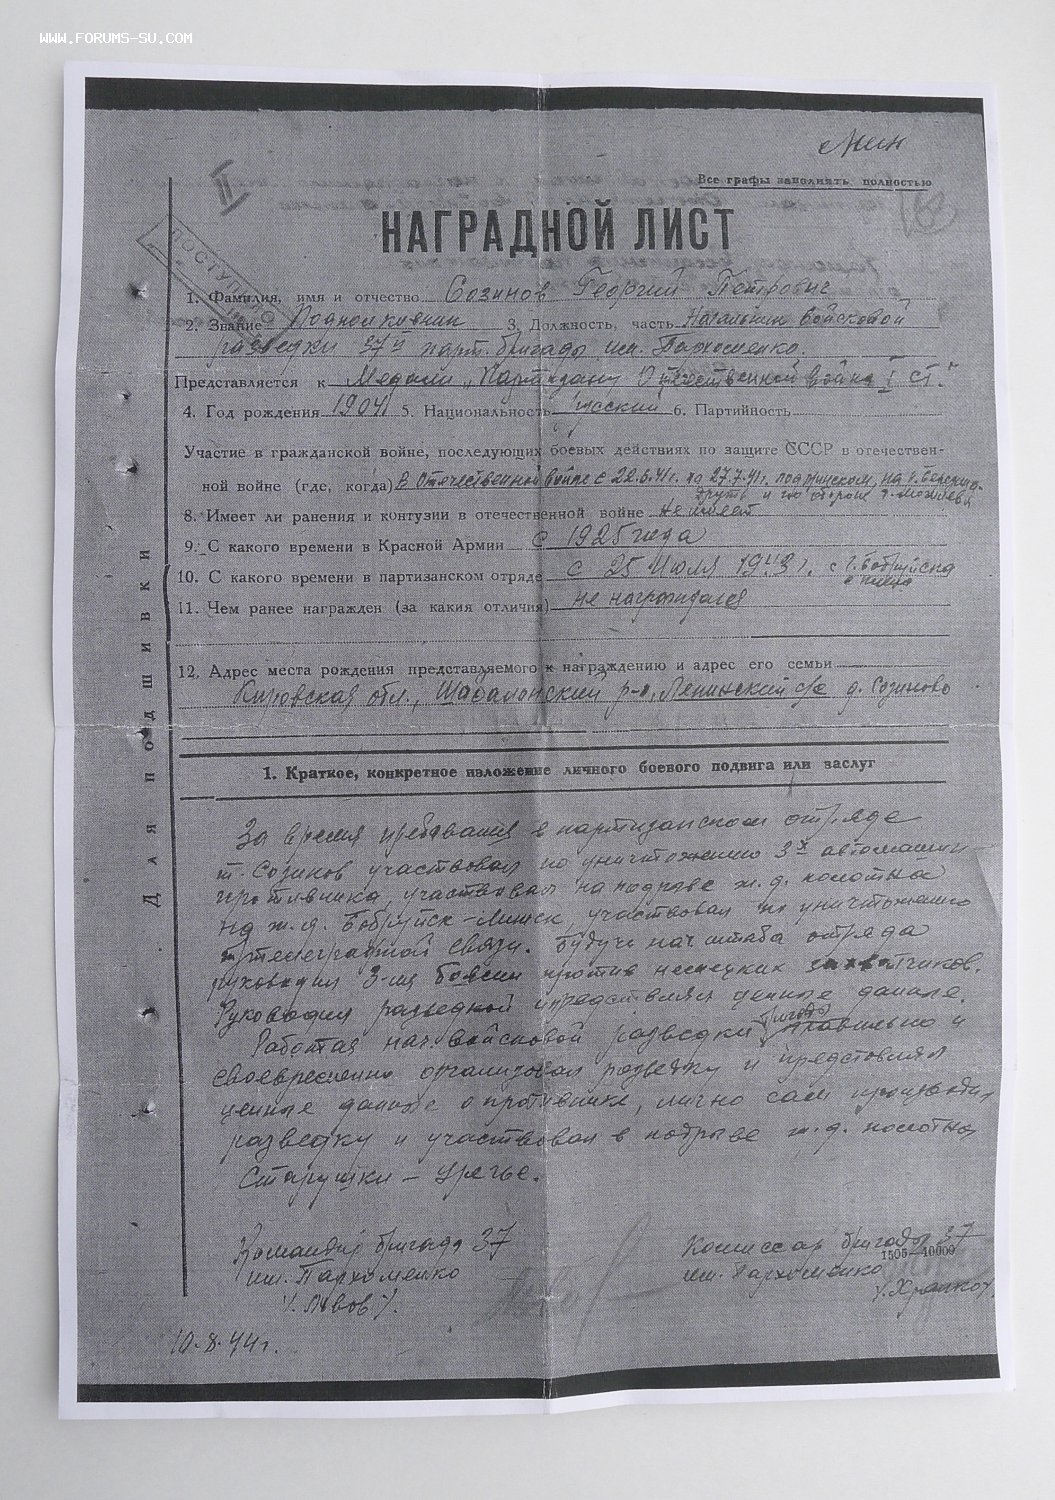 WWW.FORUMS-SU.COM
Мин
Все графы заполнять полностью
II
НАГРАДНОЙ ЛИСТ
ПОСТУПИЛО
1. Фамилия, имя и отчество Созинов Георгий Петрович
2. Звание Подполковник 3. Должность, часть Начальник войсковой
разведки 37й парт. бригады им. Пархоменко.
Представляется к Медали „Партизану Отечественной войны I ст."
4. Год рождения 1904 5. Национальность русский 6. Партийность
Участие в гражданской войне, последующих боевых действиях по защите СССР в отечествен-
ной войне (где, когда) В Отечественной войне с 22.6.41г. по 27.7.41г. под Минском, на р. Березина,
Друть и по обороне г. Могилев
8. Имеет ли ранения и контузии в отечественной войне не имеет
9. С какого времени в Красной Армии с 1925 года
10. С какого времени в партизанском отряде с 25 Июля 1943 г. с г. Бобруйска
из плена
11. Чем ранее награжден (за какия отличия) не награждался
12. Адрес места рождения представляемого к награждению и адрес его семьи
Кировская обл., Шабалинский р-н, Ленинский с/с д. Созиново
Для подшивки
1. Краткое, конкретное изложение личного боевого подвига или заслуг
За время пребывания в партизанском отряде
т. Созинов участвовал по уничтожению 3х автомашин
противника, участвовал на подрыве ж.д. полотна
на ж.д. Бобруйск-Минск, участвовал по уничтожению
телеграфной связи. Будучи нач штаба отряда
руководил 3-мя боями против немецких захватчиков.
Руководил разведкой и представлял ценные данные.
Работая нач. войсковой разведки бригады правильно и
своевременно организовал разведку и представлял
ценные данные о противнике, лично сам производил
разведку и участвовал в подрыве ж.д. полотна
Старушки – Уречье.
Командир бригады 37
им. Пархоменко
/Львов/.
Комиссар бригады 37
1505—10000
им. Пархоменко
10.8.44г.